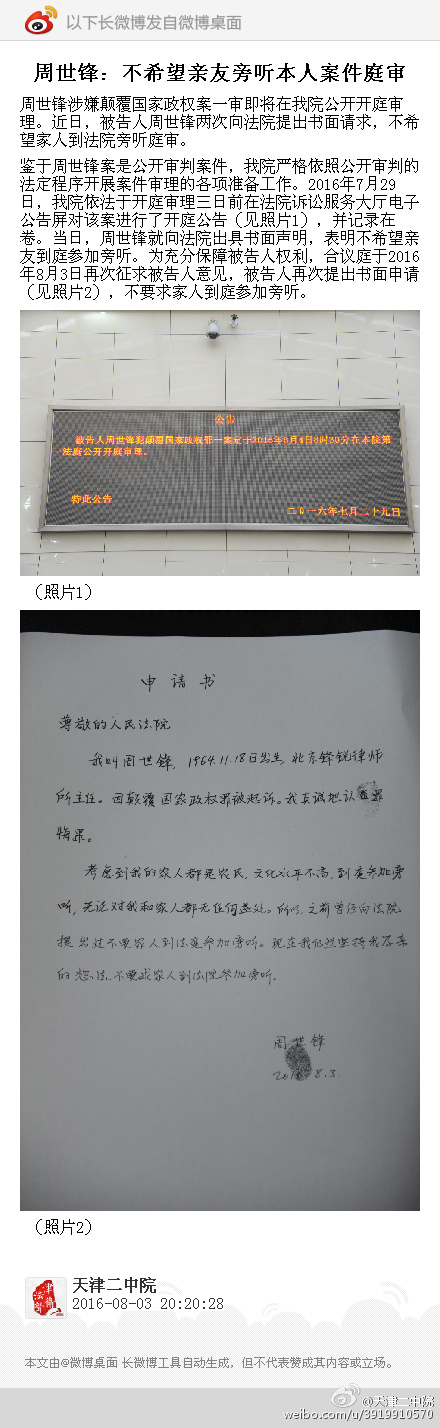 以下长微博发自微博桌面
周世锋：不希望亲友旁听本人案件庭审
周世锋涉嫌颠覆国家政权案一审即将在我院公开开庭审
理。近日，被告人周世锋两次向法院提出书面请求，不希
望家人到法院旁听庭审。
鉴于周世锋案是公开审判案件，我院严格依照公开审判的
法定程序开展案件审理的各项准备工作。2016年7月29
日，我院依法于开庭审理三日前在法院诉讼服务大厅电子
公告屏对该案进行了开庭公告（见照片1），并记录在
卷。当日，周世锋就向法院出具书面声明，表明不希望亲
友到庭参加旁听。为充分保障被告人权利，合议庭于2016
年8月3日再次征求被告人意见，被告人再次提出书面申请
（见照片2），不要求家人到庭参加旁听。
公告
被告人周世锋犯颠覆国家政权罪一案定于2016年8月4日8时30分在本院第
法庭公开开庭审理。
特此公告
二0一六年七月二十九日
（照片1）
申请书
尊敬的人民法院
我叫周世锋，1964.11.18日出生，北京锋锐律师
所主任。因颠覆国家政权罪被起诉。我真诚地认罪
悔罪。
考虑到我的家人都是农民，文化水平不高，到庭参加旁
听，无论对我和家人都无任何益处。所以，之前曾经向法院
提出过不要家人到法庭参加旁听。现在我仍然坚持我原来
的想法，不要求家人到法院参加旁听。
周世锋
2016.8.3.
（照片2）
天津二中院
2016-08-03 20:20:28
本文由@微博桌面 长微博工具自动生成，但不代表赞成其内容或立场。
@天津二中院
weibo.com/u/3919910570